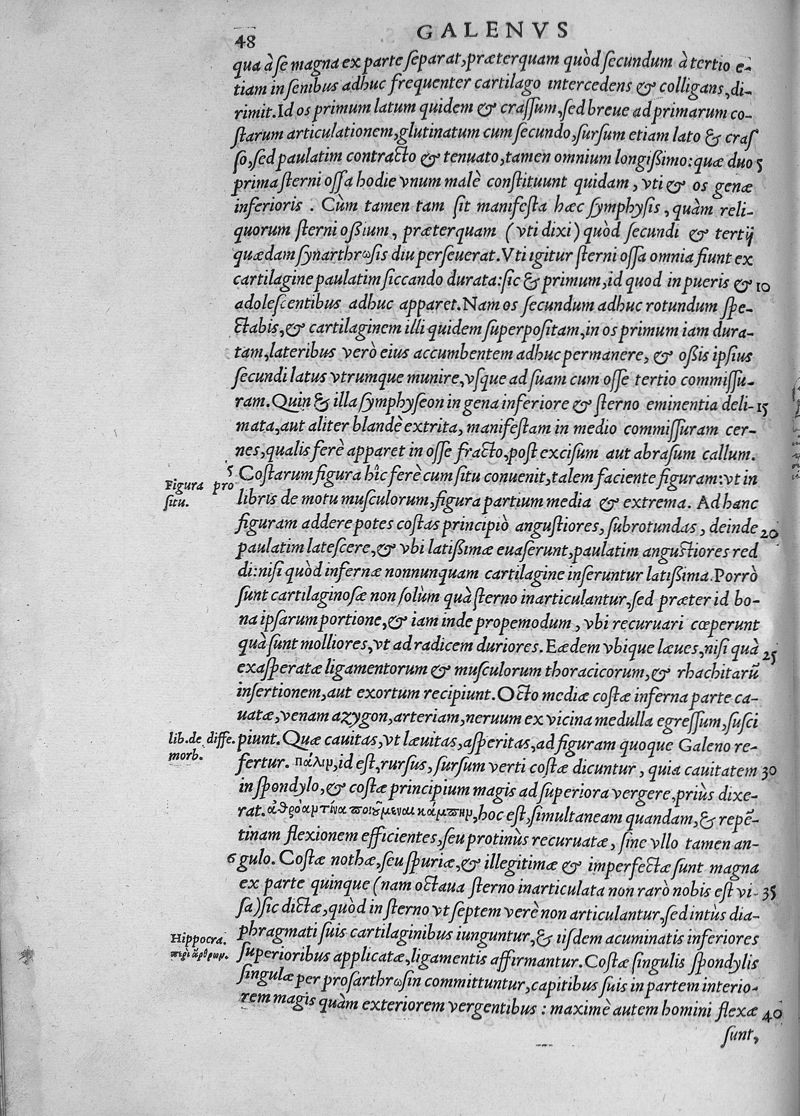 48
GALENVS
qua à se magna ex parte separat, præterquam quòd secundum à tertio e-
tiam in senibus adhuc frequenter cartilago intercedens & colligans, di-
rimit. Id os primum latum quidem & crassum, sed breue ad primarum co-
starum articulationem, glutinatum cum secundo, sursum etiam lato & cras
so, sed paulatim contracto & tenuato, tamen omnium longißimo: quæ duo 5
prima sterni ossa hodie vnum malè constituunt quidam, vti & os genæ
inferioris. Cùm tamen tam sit manifesta hæc symphysis, quàm reli-
quorum sterni oßium, præterquam (vti dixi) quòd secundi & tertij
quædam synarthrωsis diu perseuerat. Vti igitur sterni ossa omnia fiunt ex
cartilagine paulatim siccando durata: sic & primum, id quod in pueris & 10
adolescentibus adhuc apparet. Nam os secundum adhuc rotundum spe-
ctabis, & cartilaginem illi quidem superpositam, in os primum iam dura-
tam, lateribus verò eius accumbentem adhuc permanere, & oßis ipsius
secundi latus vtrumque munire, vsque ad suam cum osse tertio commissu-
ram. Quin & illa symphyseon in gena inferiore & sterno eminentia deli- 15
mata, aut aliter blandè extrita, manifestam in medio commissuram cer-
nes, qualis ferè apparet in osse fracto, post excisum aut abrasum callum.
Figura pro
situ.
5 Costarum figura hîc ferè cum situ conuenit, talem faciente figuram: vt in
libris de motu musculorum, figura partium media & extrema. Ad hanc
figuram addere potes costas principiò angustiores, subrotundas, deinde 20
paulatim latescere, & vbi latißimæ euaserunt, paulatim angustiores red
di: nisi quòd infernæ nonnunquam cartilagine inseruntur latißima. Porrò
sunt cartilaginosæ non solùm quà sterno inarticulantur, sed præter id bo-
na ipsarum portione, & iam inde propemodum, vbi recuruari cœperunt
quà sunt molliores, vt ad radicem duriores. Eædem vbique læues, nisi quà 25
exasperatæ ligamentorum & musculorum thoracicorum, & rhachitarũ
insertionem, aut exortum recipiunt. Octo mediæ costæ inferna parte ca-
uatæ, venam azygon, arteriam, neruum ex vicina medulla egressum, susci
lib. de diffe.
morb.
piunt. Quæ cauitas, vt læuitas, asperitas, ad figuram quoque Galeno re-
fertur. πάλιμ, id est, rursus, sursum verti costæ dicuntur, quia cauitatem 30
in spondylo, & costæ principium magis ad superiora vergere, priùs dixe-
rat. ἀθρόαμ τίνα ποιούμεναι κάμπημ, hoc est, simultaneam quandam, & repẽ-
tinam flexionem efficientes, seu protinùs recuruatæ, sine vllo tamen an-
6 gulo. Costæ nothæ, seu spuriæ, & illegitimæ & imperfectæ sunt magna
ex parte quinque (nam octaua sterno inarticulata non rarò nobis est vi- 35
sa) sic dictæ, quòd in sterno vt septem verè non articulantur, sed intùs dia-
Hippocra.
πεϱὶ ἄρθρωμ.
phragmati suis cartilaginibus iunguntur, & iisdem acuminatis inferiores
superioribus applicatæ, ligamentis affirmantur. Costæ singulis spondylis
singulæ per prosarthrωsin committuntur, capitibus suis in partem interio-
rem magis quàm exteriorem vergentibus: maximè autem homini flexæ 40
sunt,